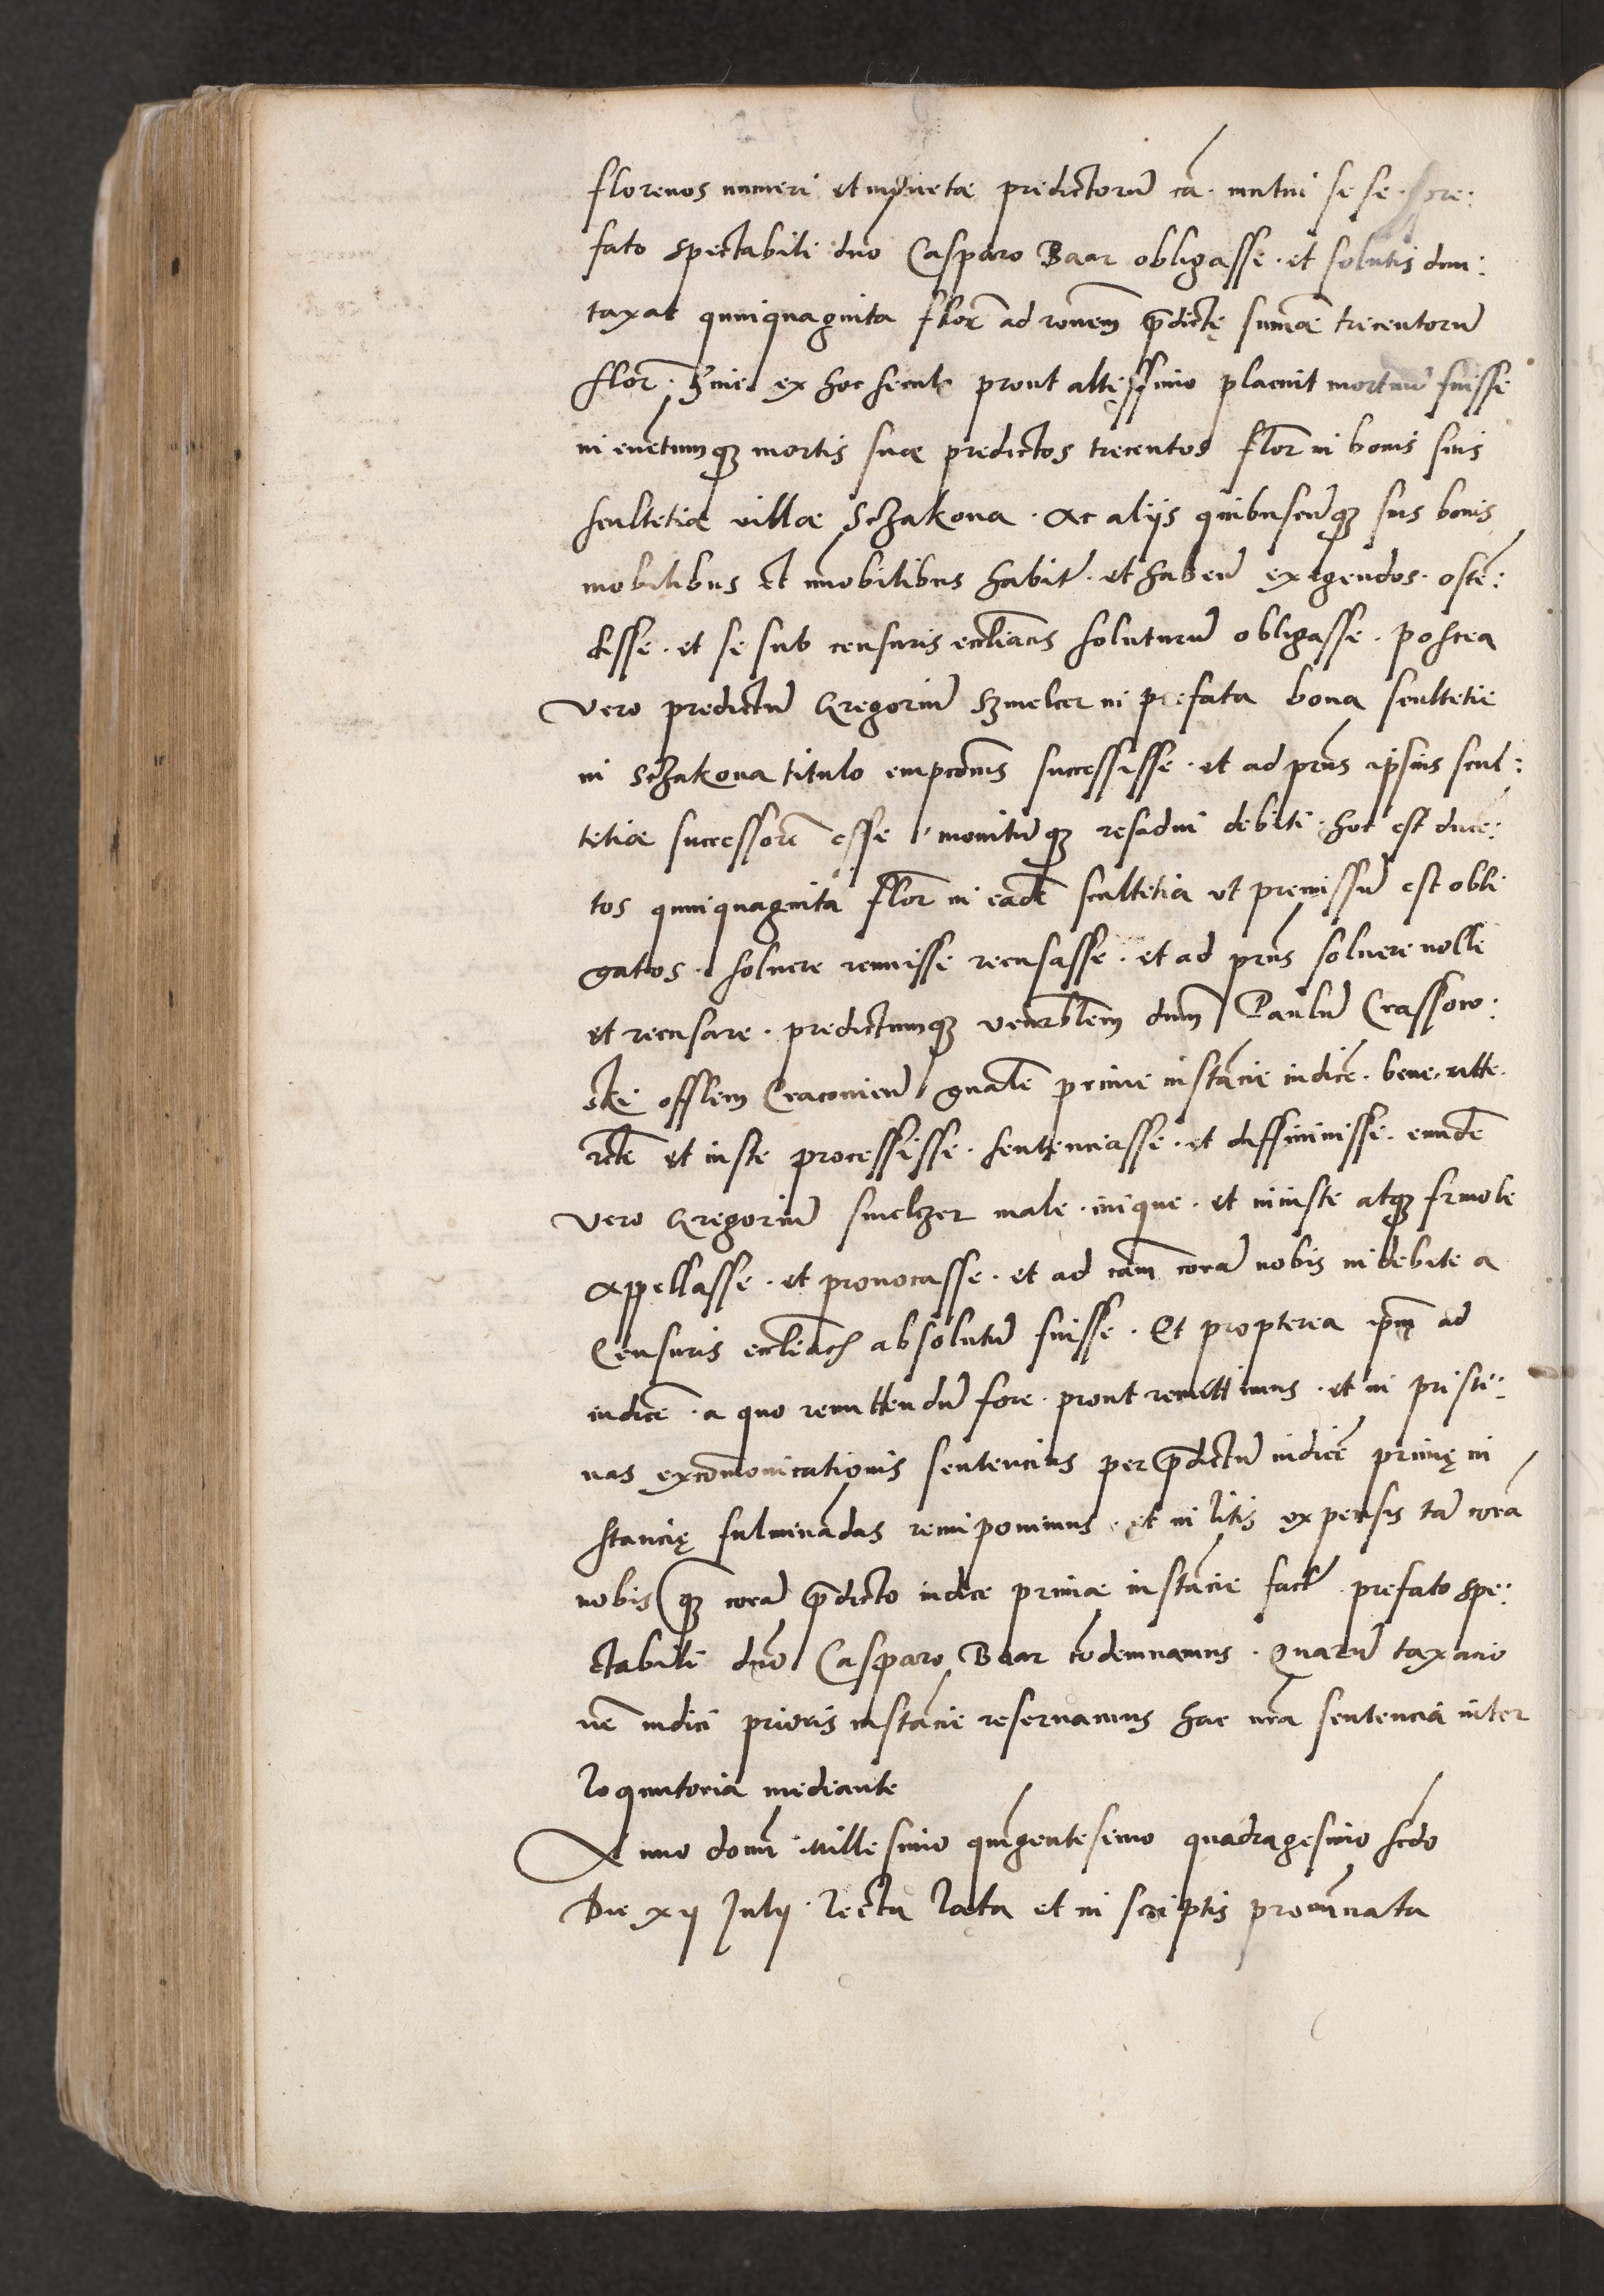 florenos numeri et monetae predictorū cā. mutui se se pre:
fato spectabili dno Casparo Baar obligasse. et solutis dun:
taxat quinquaginta flor̄ ad ronem p̄dictę summae trecentorū
flor̄. ex hoc seculo prout altissimo placuit mortuū fuisse
in euētumq3 mortis suae predictos trecentos flor̄ in bonis suis
scultetiae villae Sczakowa. ac aliis quibuscūq3 suis bonis
mobilibus et imobilibus habit̄. et habeñ exigendos. ostē:
disse. et se sub censuris eccliacis soluturū obligasse. postea
vero predictū Gregoriū Szmelcer in prefata bona scultetie
in Sczakowa titulo empconis successisse. et ad pn̄s ipsius scul:
tetiae successorē esse monitūq3 residui debiti. hoc est ducē:
tos quinquaginta flor̄ in eadē scultetia ut premissū est obli
gatos. soluere renuisse recusasse. et ad pn̄s soluere nolle
et recusare. predictumq3 venerblem dnm Paulū Crassow:
ski offlem Cracovien̄ gnalē prime instācie iudicē. bene. rite.
rctē et iuste processisse. sentenciasse. et diffinivisse. eundē
vero Gregoriū Smelczer male. inique. et iniuste atq3 friuole
appellasse. et prouocasse. et ad cām corā nobis indebite a
Censuris eccleiacis absolutū fuisse. Et propterea ipm ad
iudicē. a quo remittendū fore. prout remittimus. et in pristi:
nas excōmonicationis sentencias per p̄dictū iudicē primę in
stancię fulminādas reimponimus. et in litis expensis tā corā
nobis q3 corā p̄dicto iudice primae instācie fact̄. prefato spe:
ctabili dno Casparo Baar cōdemnamus. Quarū taxacio
nē iudici prioris instācie reseruamus hac nrā sentencia inter
loquutoria mediante
Anno domī Millesimo quīgentesimo quadragesimo scdo
Die xij Julij. lecta lata et in scriptis pronūnciata